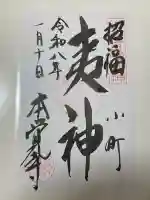 招福
小町
夷神
令和八年
一月十日
本覚寺